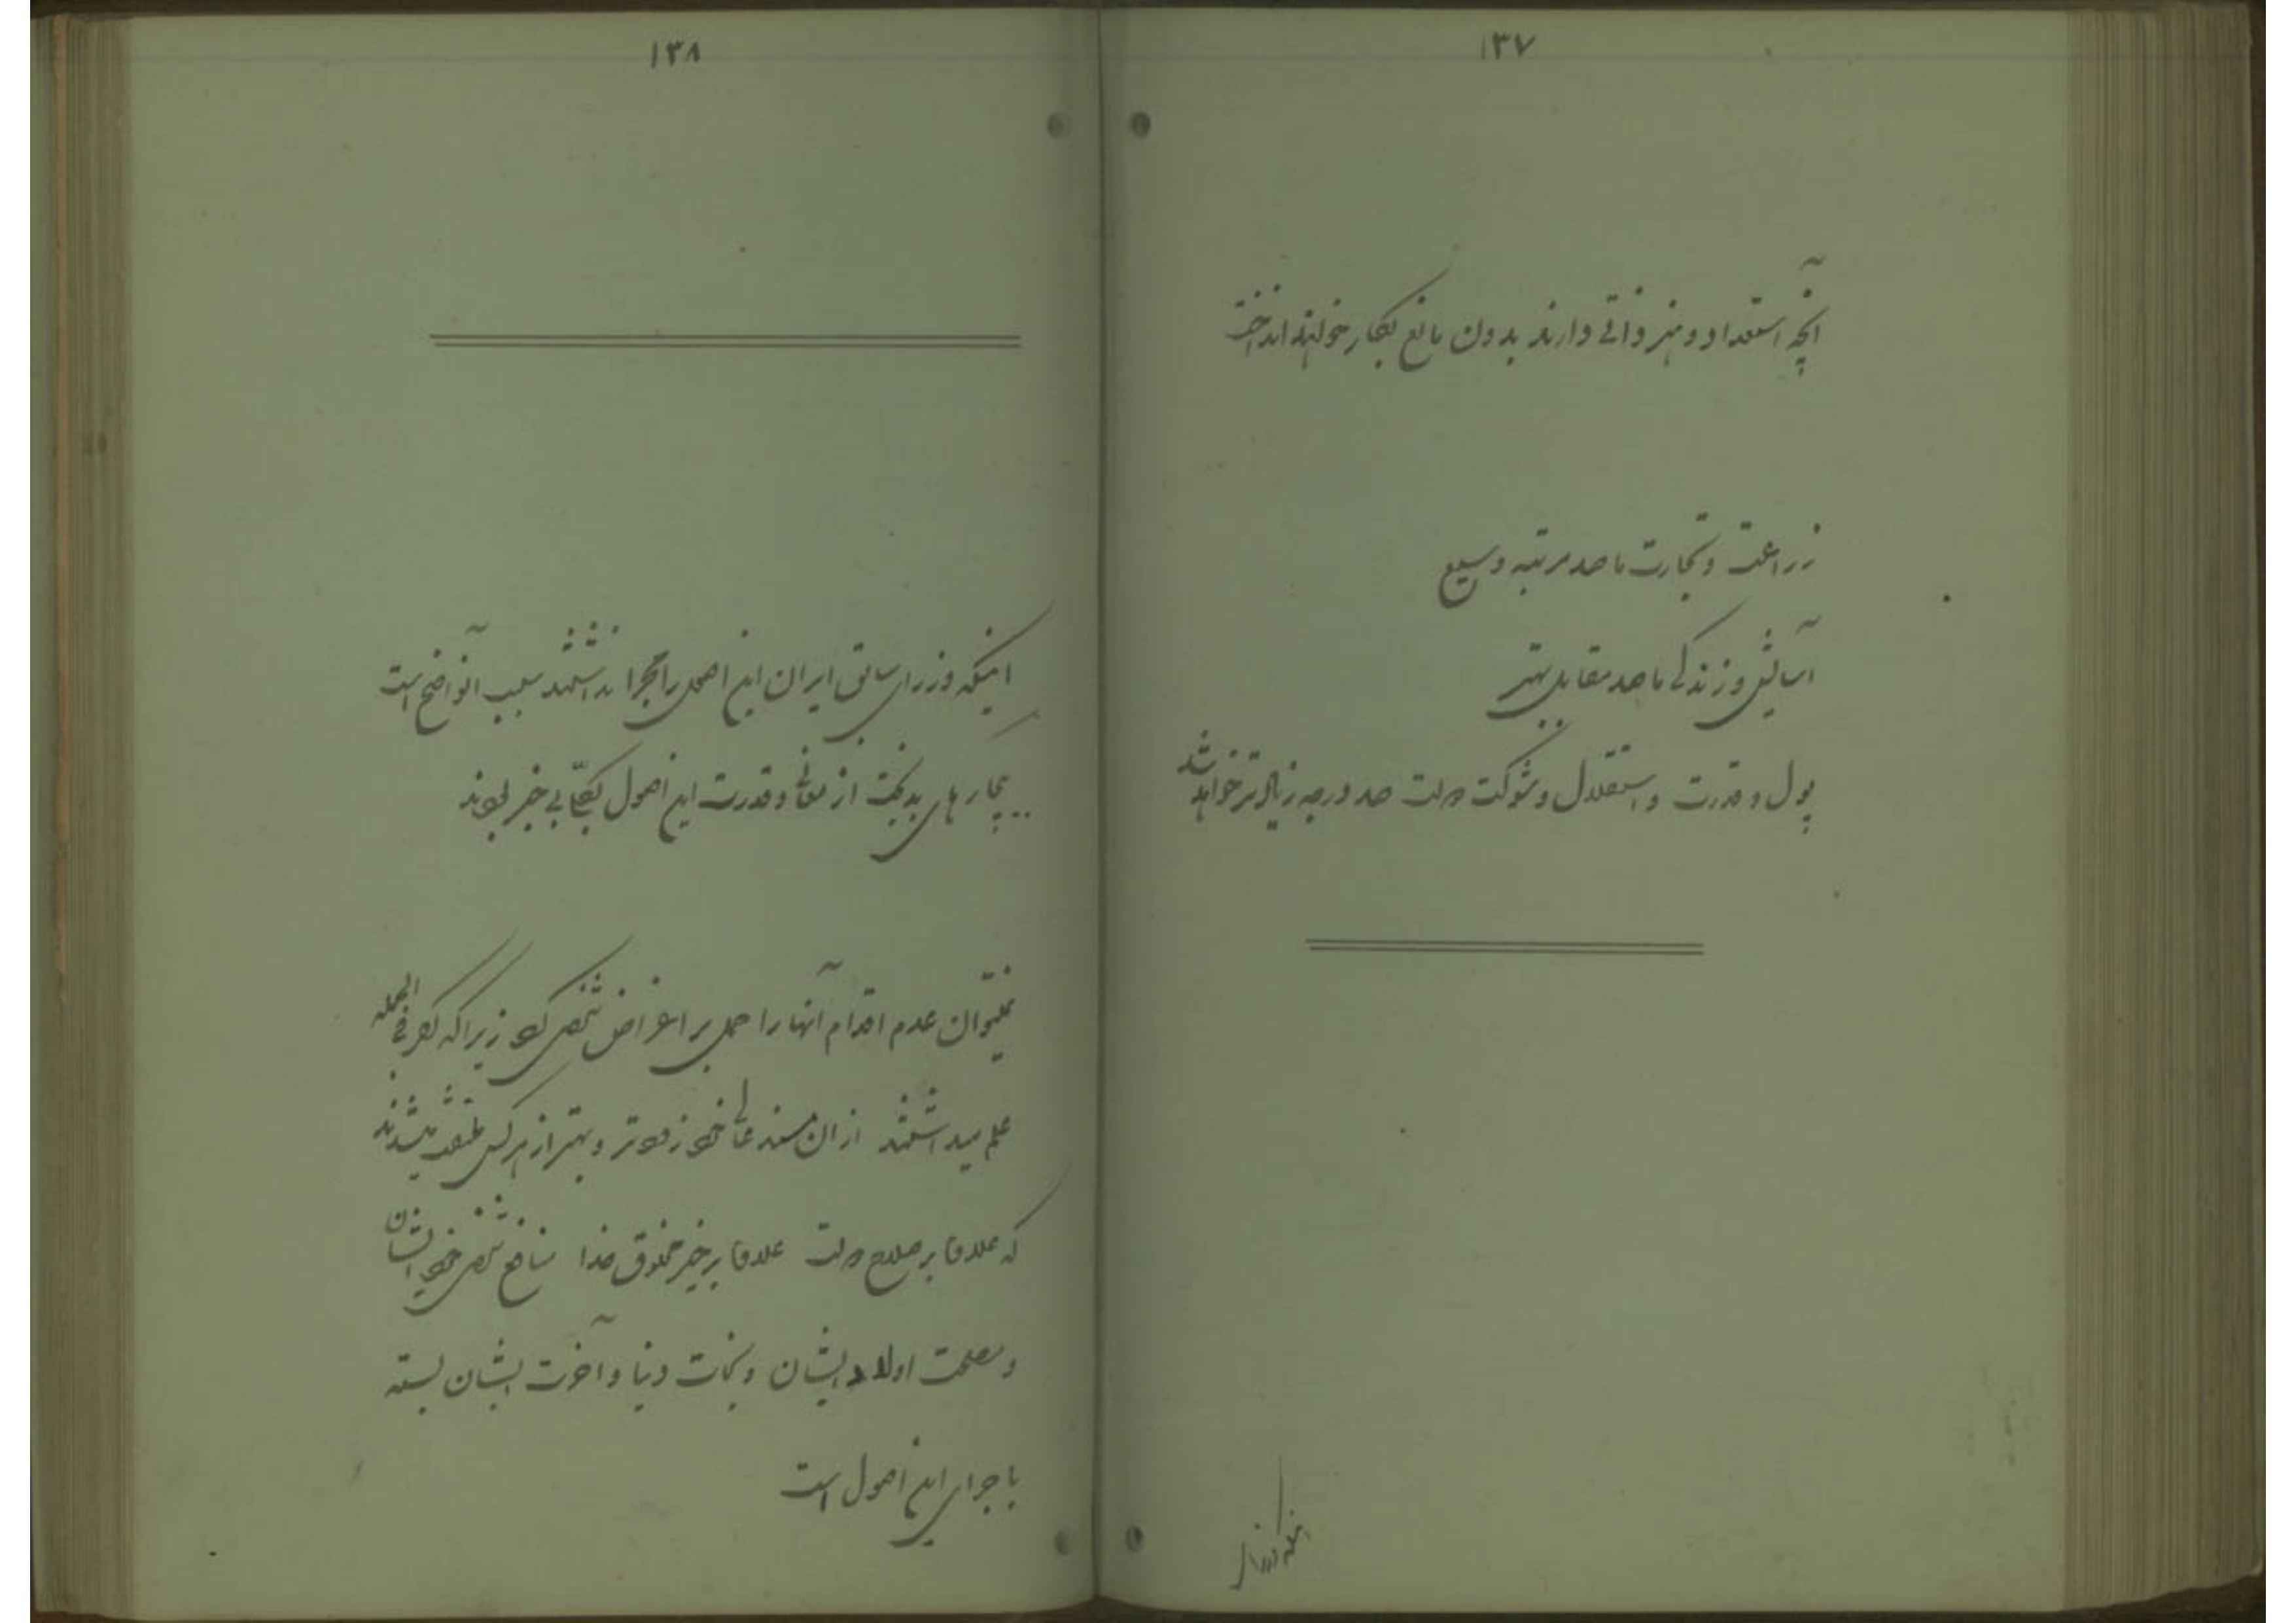 ۱۳۷
آنچه استعداد و هنر ذاتی دارند بدون مانع بکار خواهند انداخت
زراعت و تجارت ما صد مرتبه وسیع
آسایش و زندگی ما صد مقابل بهتر
پول و قدرت و استقلال و شوکت دولت صد درجه زیادتر خواهد شد
اینکه وزرای
۱۳۸
اینکه وزرای سابق ایران این اصول را مجرا نداشتند سبب آن واضح است
بیچاره‌های بدبخت از معانی و قدرت این اصول بکلی بی‌خبر بودند
نمیتوان عدم اقدام آنها را حمل بر اغراض شخصی کرد زیرا که هرگاه فی الجمله
علم میداشتند از آن مسند عالی خود زودتر و بهتر از هر کس ملتفت میشدند
که علاوه بر صلاح دولت علاوه بر خیر مخلوق خدا منافع شخصی خود ایشان
و مصلحت اولاد ایشان و نجات دنیا و آخرت ایشان بسته
باجرای این اصول است